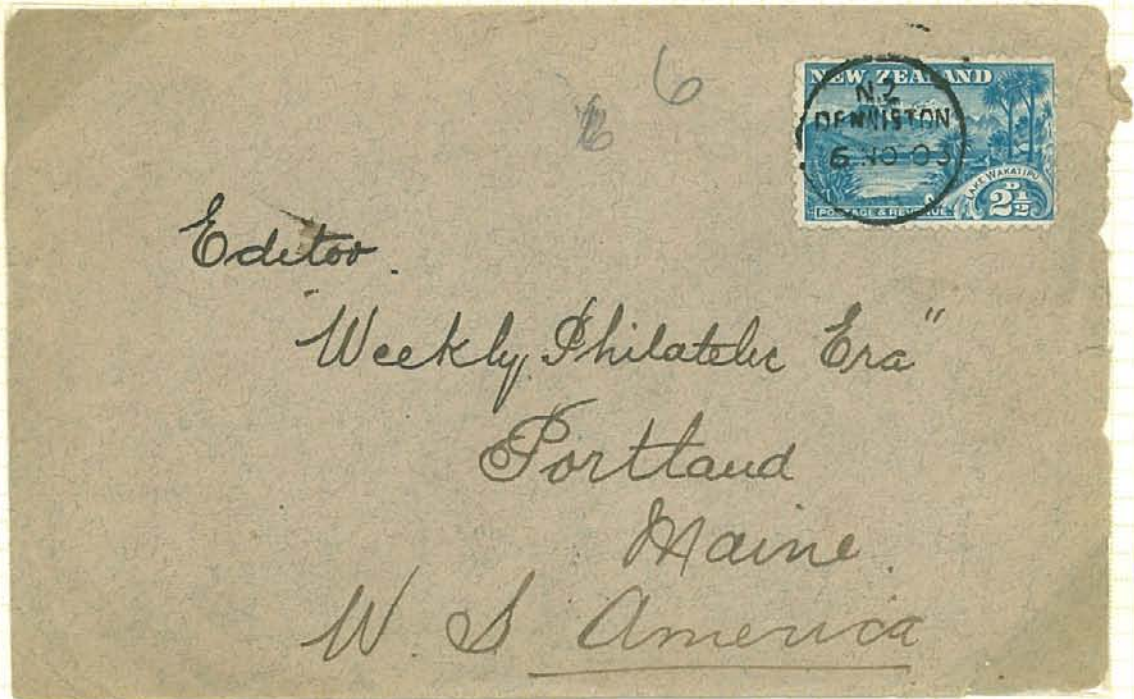 6
NEW ZEALAND
N.Z
DENNISTON
6 NO 03
LAKE WAKATIPU
POSTAGE & REVENUE
2D½
Editor.
"Weekly Philatelic Era"
Portland
Maine.
U. S America